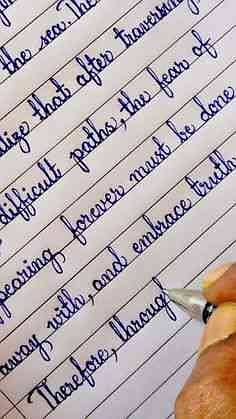 the sea. The
that after traversing
difficult paths, the fear of
pearing forever must be done
away with, and embrace truth
Therefore, throug